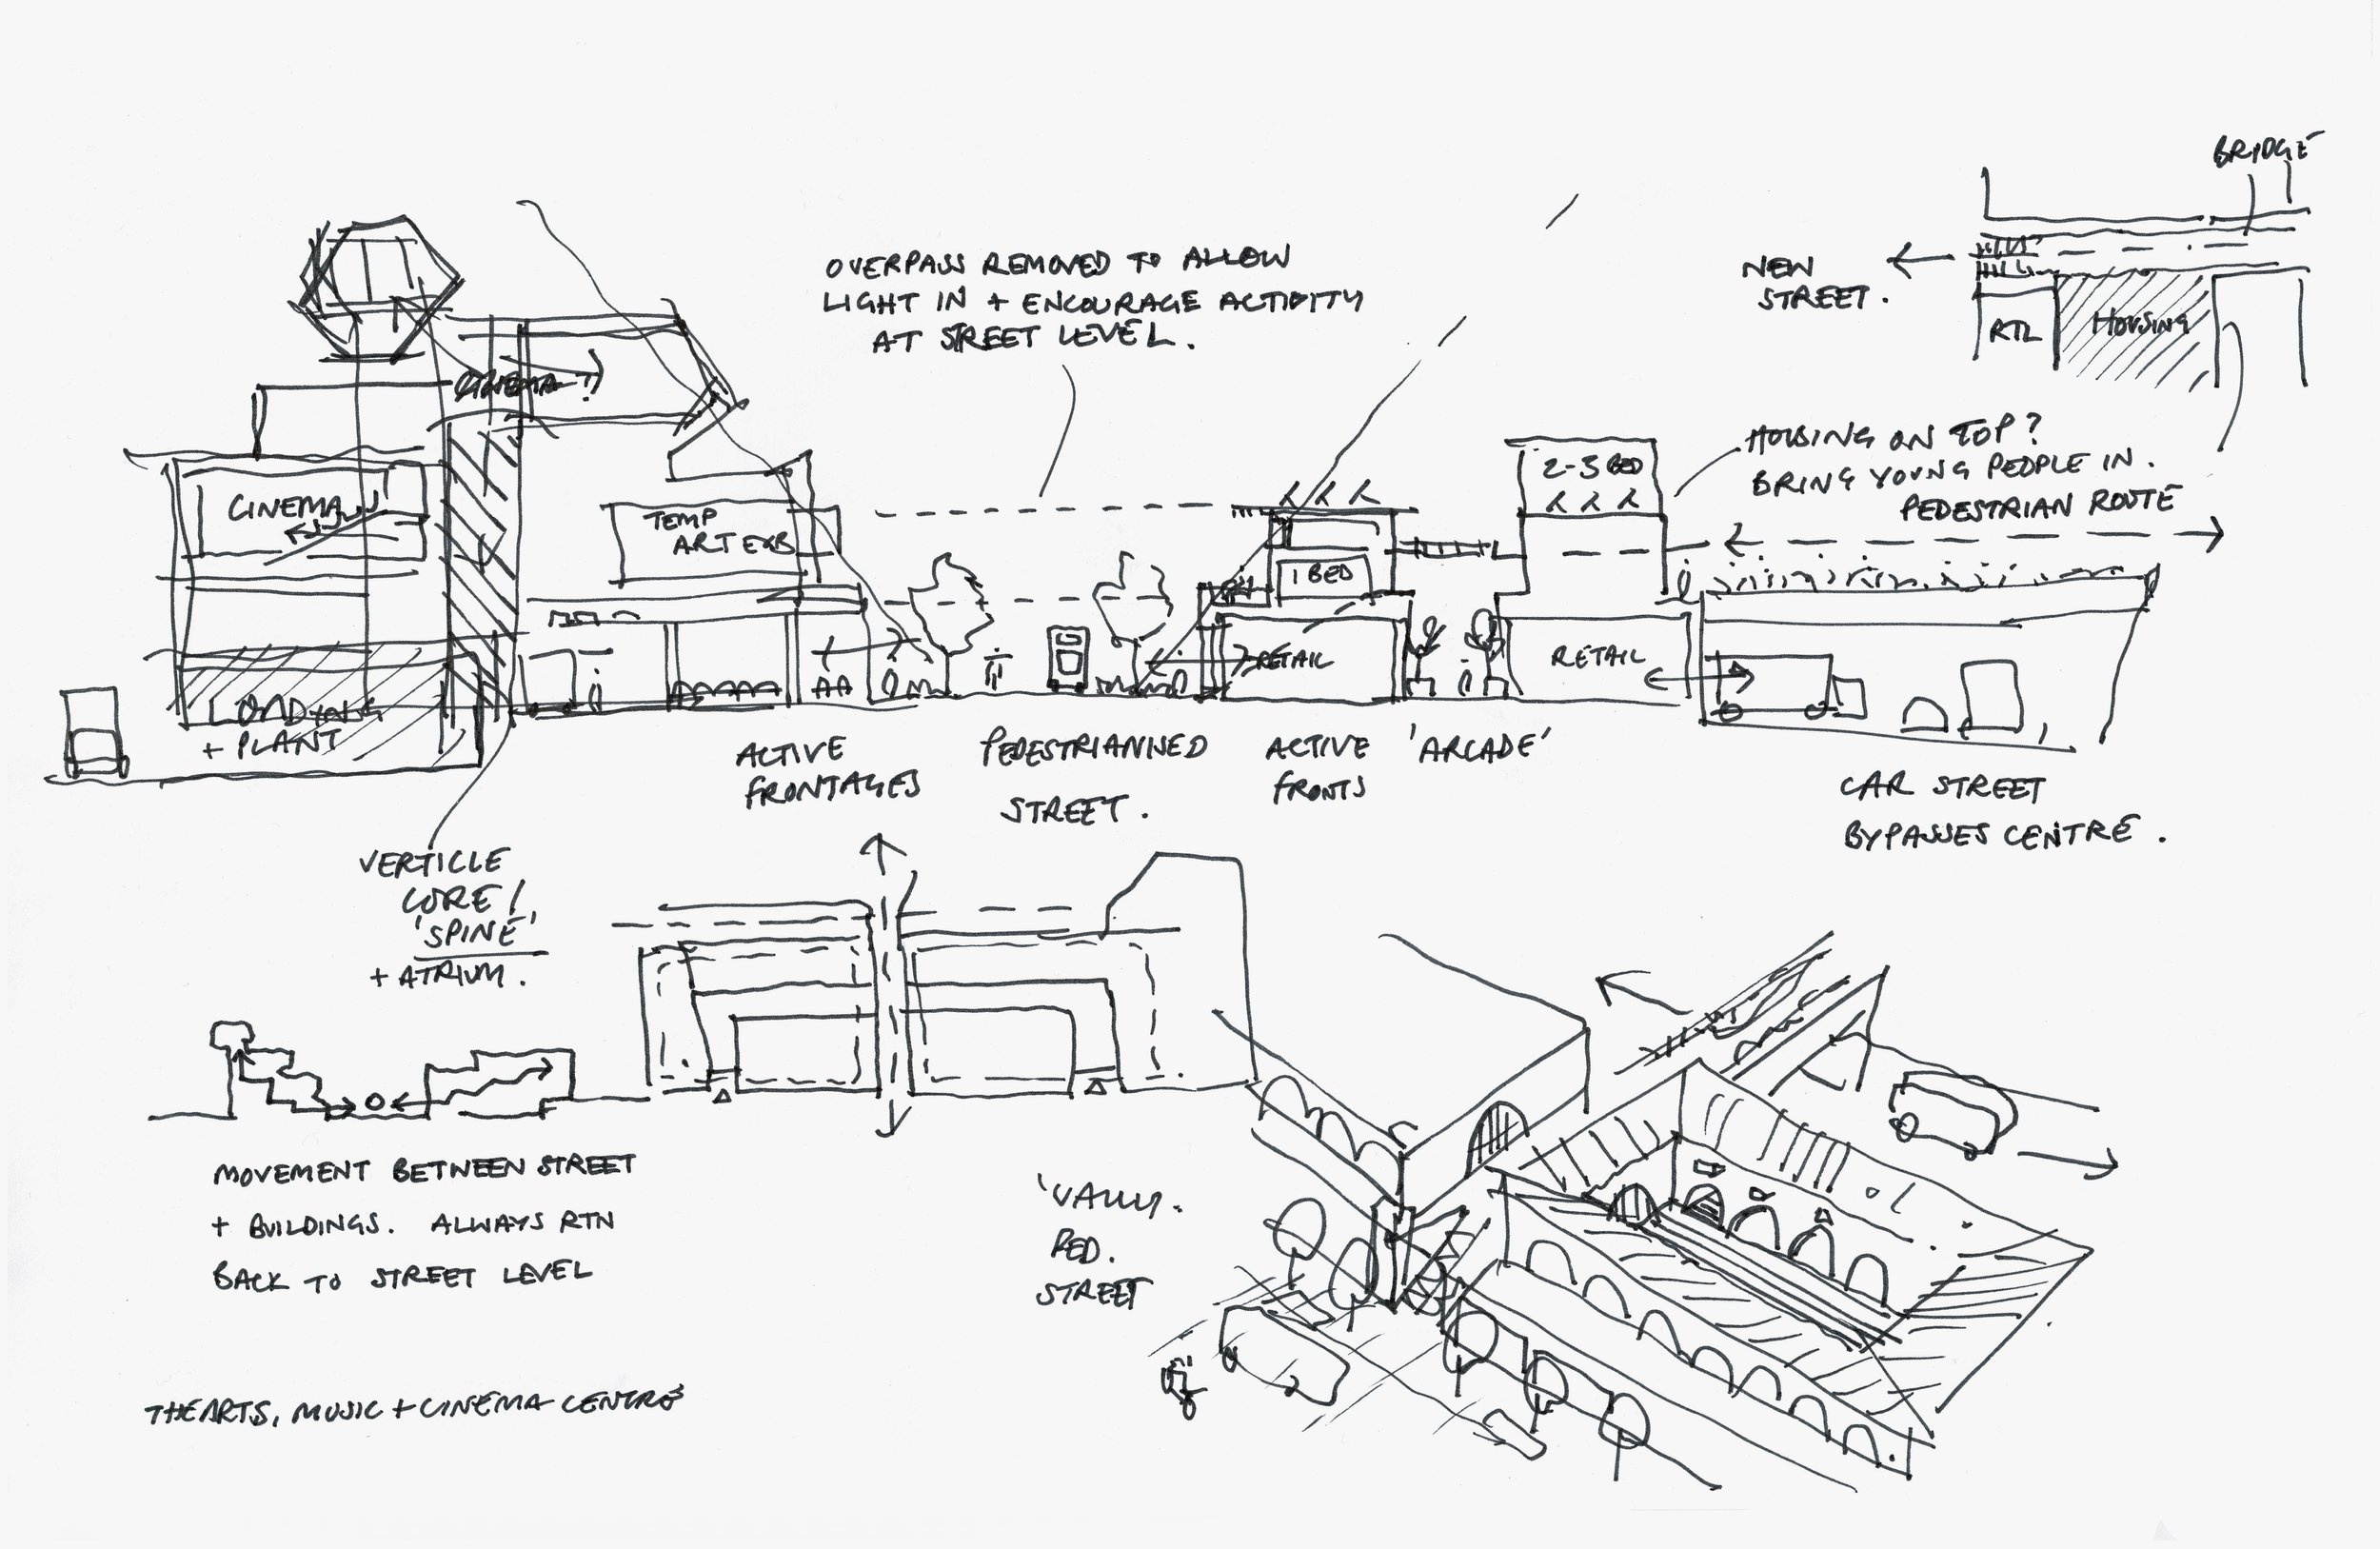 BRIDGE
NEW
STREET.
RTL
HOUSING
OVERPASS REMOVED TO ALLOW
LIGHT IN + ENCOURAGE ACTIVITY
AT STREET LEVEL.
CINEMA?
HOUSING ON TOP?
BRING YOUNG PEOPLE IN.
PEDESTRIAN ROUTE
CINEMA
TEMP
ART EXB
1 BED
2-3 BED
RETAIL
RETAIL
LOADING
+ PLANT
ACTIVE
FRONTAGES
PEDESTRIANISED
STREET.
ACTIVE
FRONTS
'ARCADE'
CAR STREET
BYPASSES CENTRE.
VERTICLE
CORE/
'SPINE'
+ ATRIUM.
MOVEMENT BETWEEN STREET
+ BUILDINGS. ALWAYS RTN
BACK TO STREET LEVEL
'VALLY.
PED.
STREET
THEARTS, MUSIC + CINEMA CENTRE